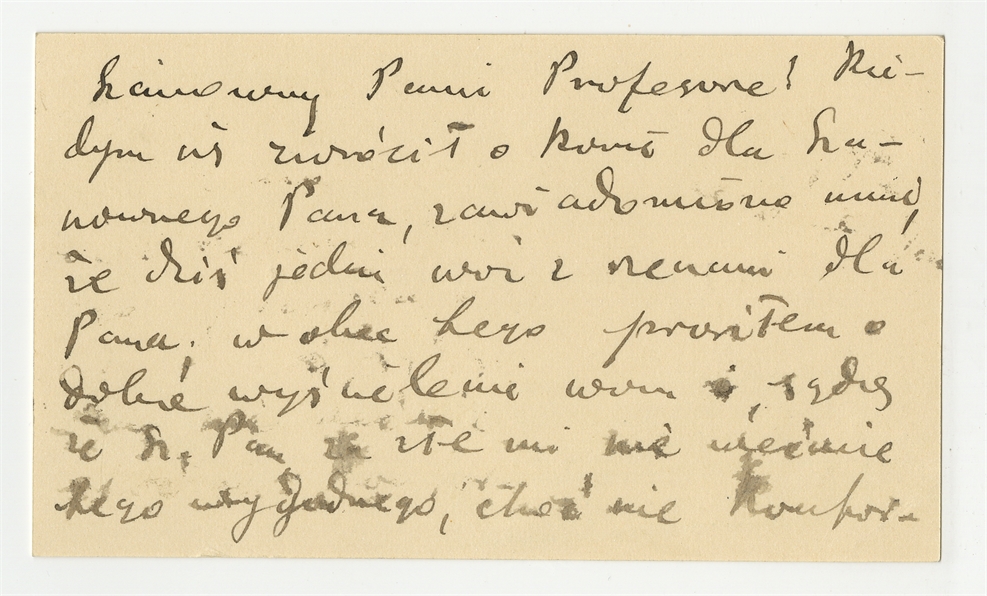 Szanowny Panie Profesorze! Kie-
dym się zwrócił o konie dla Sza-
nownego Pana, zawiadomiono mnie,
że dziś jedzie wóz z sienami dla
Pana; wobec tego prosiłem o
dobre wyścielenie wozu, sądzę
że Sz. Pan za złe mi nie weźmie
tego wygodnego, choć nie komfor-